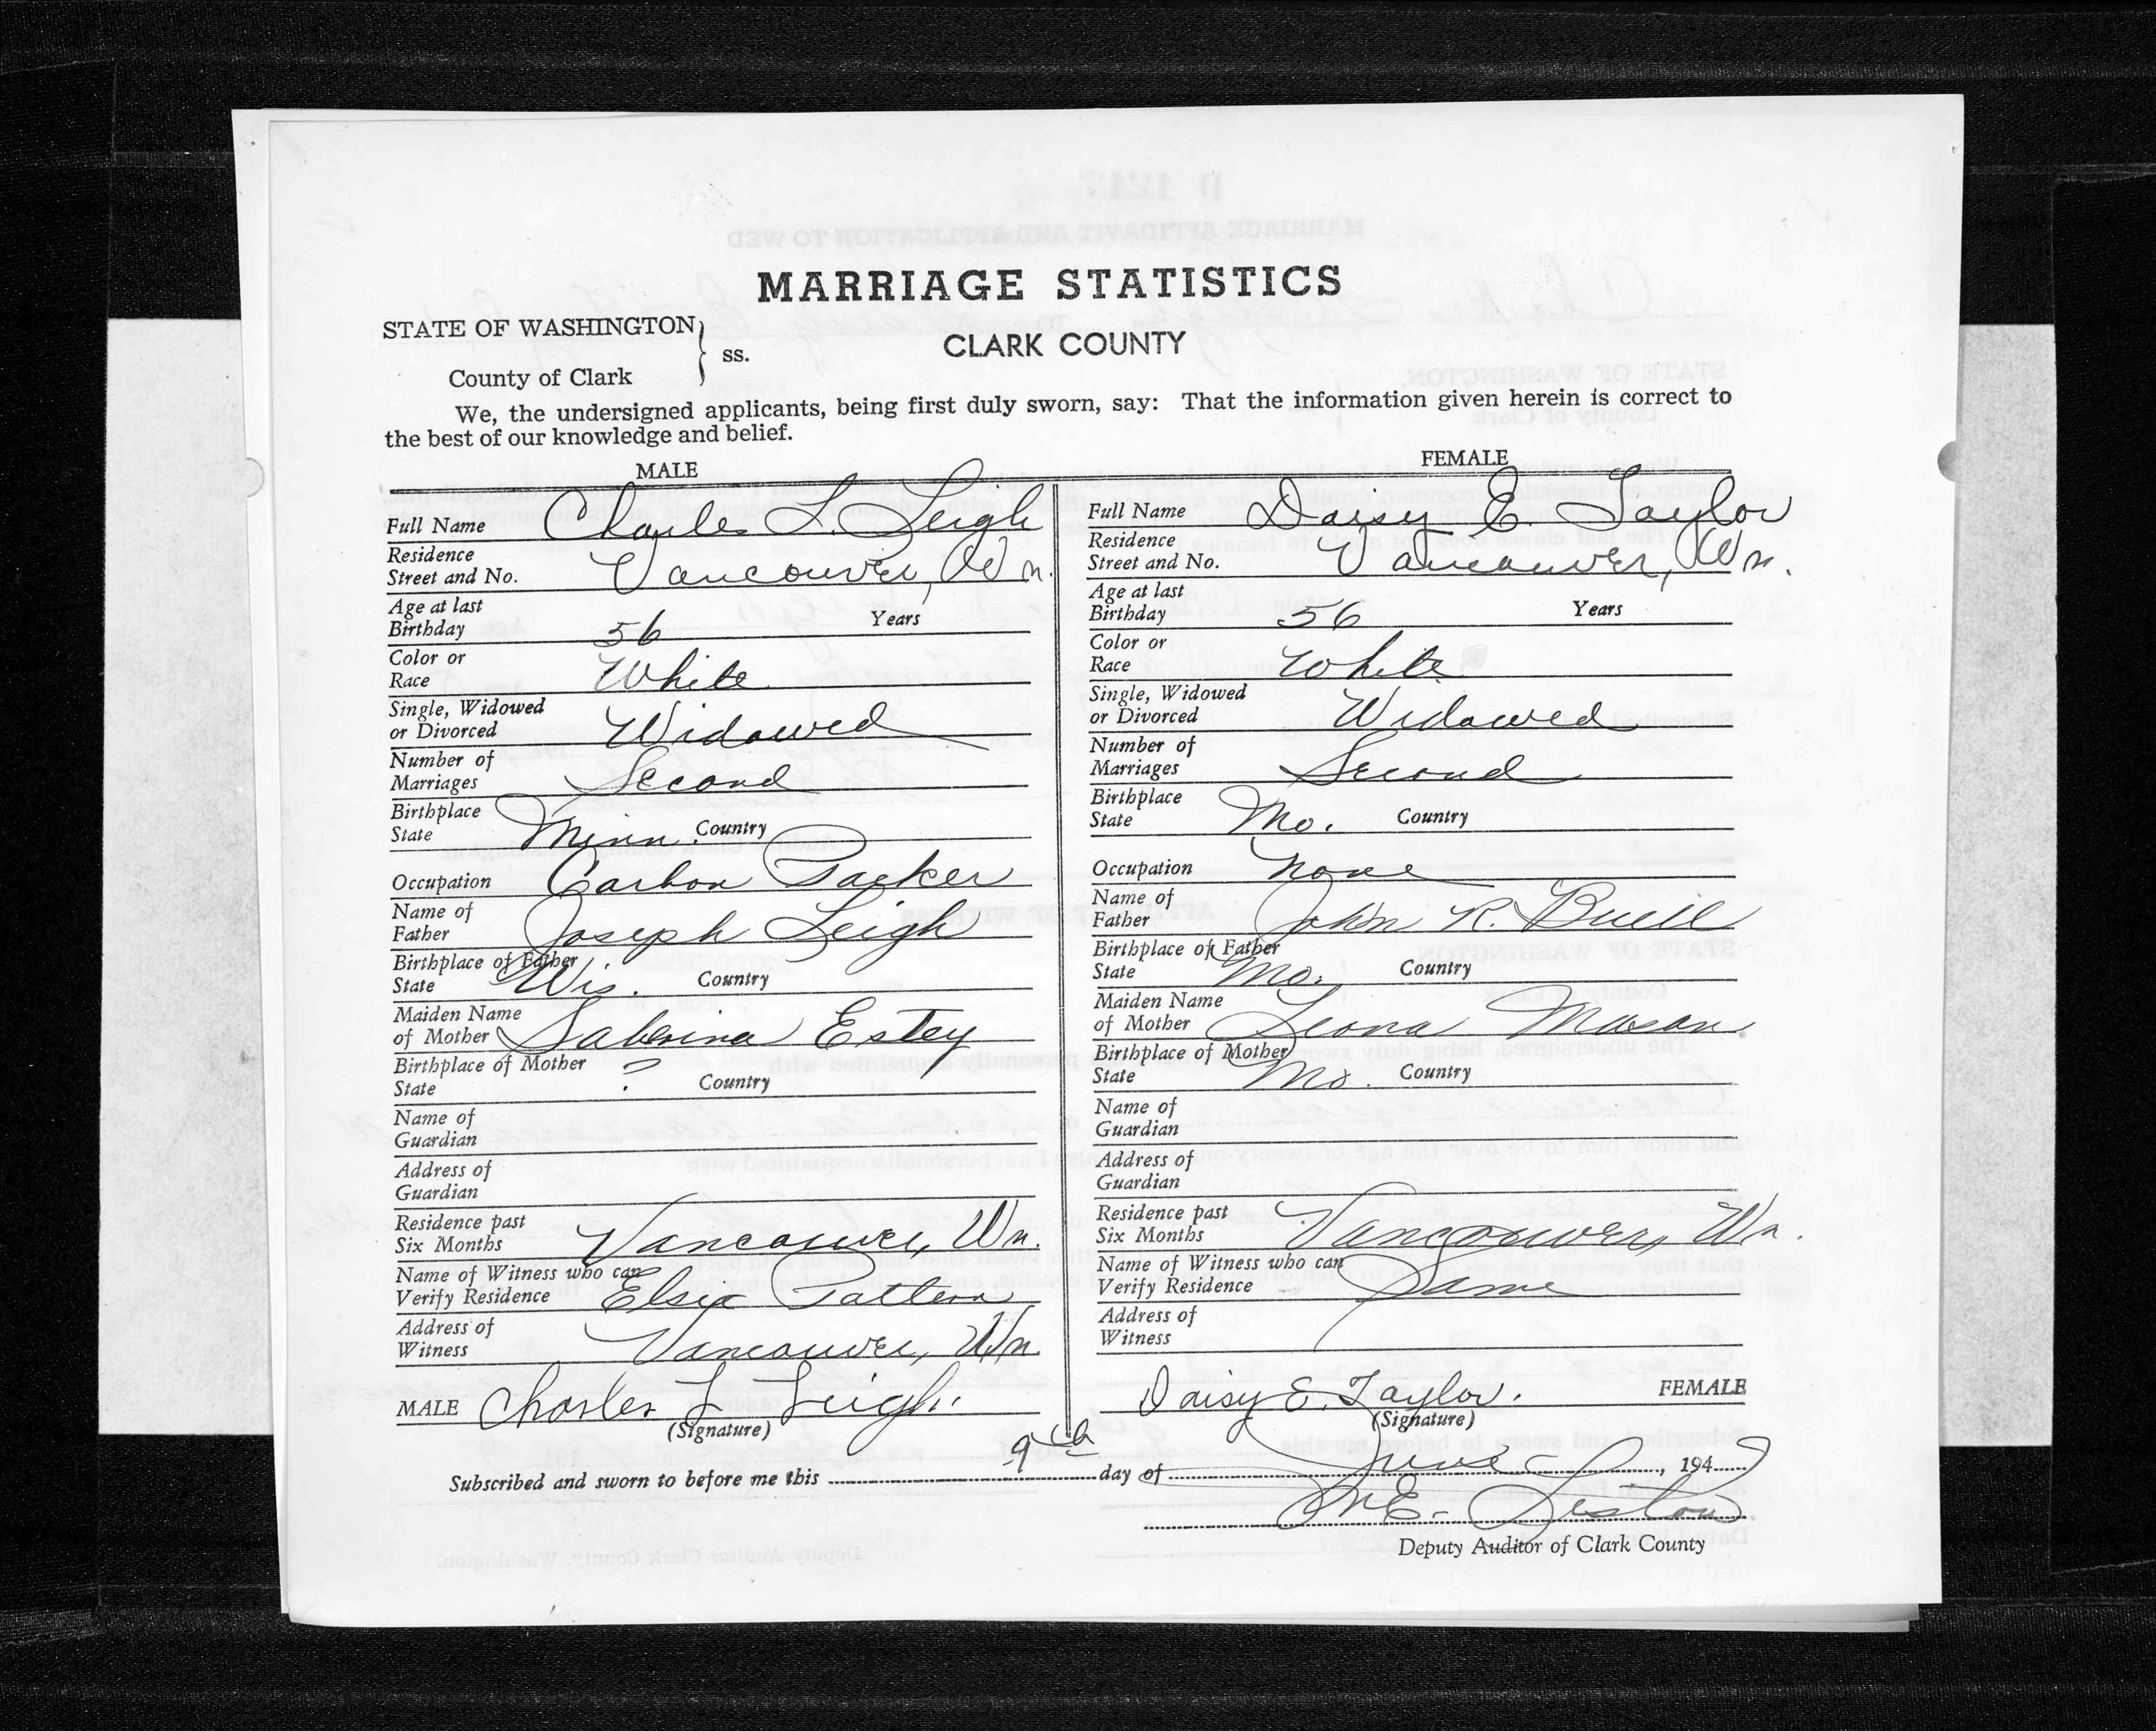 MARRIAGE STATISTICS
STATE OF WASHINGTON
County of Clark
ss.
CLARK COUNTY
We, the undersigned applicants, being first duly sworn, say: That the information given herein is correct to
the best of our knowledge and belief.
MALE
Full Name Charles L. Leigh
Residence
Street and No. Vancouver, Wn.
Age at last
Birthday 56 Years
Color or
Race White
Single, Widowed
or Divorced Widowed
Number of
Marriages Second
Birthplace
State Minn. Country
Occupation Carbon Packer
Name of
Father Joseph Leigh
Birthplace of Father
State Wis. Country
Maiden Name
of Mother Sabrina Estey
Birthplace of Mother
State ? Country
Name of
Guardian
Address of
Guardian
Residence past
Six Months Vancouver, Wn.
Name of Witness who can
Verify Residence Elsie Patten
Address of
Witness Vancouver, Wn.
MALE Charles L Leigh.
(Signature)
FEMALE
Full Name Daisy E. Taylor
Residence
Street and No. Vancouver, Wn.
Age at last
Birthday 56 Years
Color or
Race White
Single, Widowed
or Divorced Widowed
Number of
Marriages Second
Birthplace
State Mo. Country
Occupation None
Name of
Father John R. Buell
Birthplace of Father
State Mo. Country
Maiden Name
of Mother Leona Mason
Birthplace of Mother
State Mo. Country
Name of
Guardian
Address of
Guardian
Residence past
Six Months Vancouver, Wn.
Name of Witness who can
Verify Residence Same
Address of
Witness
Daisy E. Taylor. FEMALE
(Signature)
Subscribed and sworn to before me this 9th day of June, 194
Deputy Auditor of Clark County